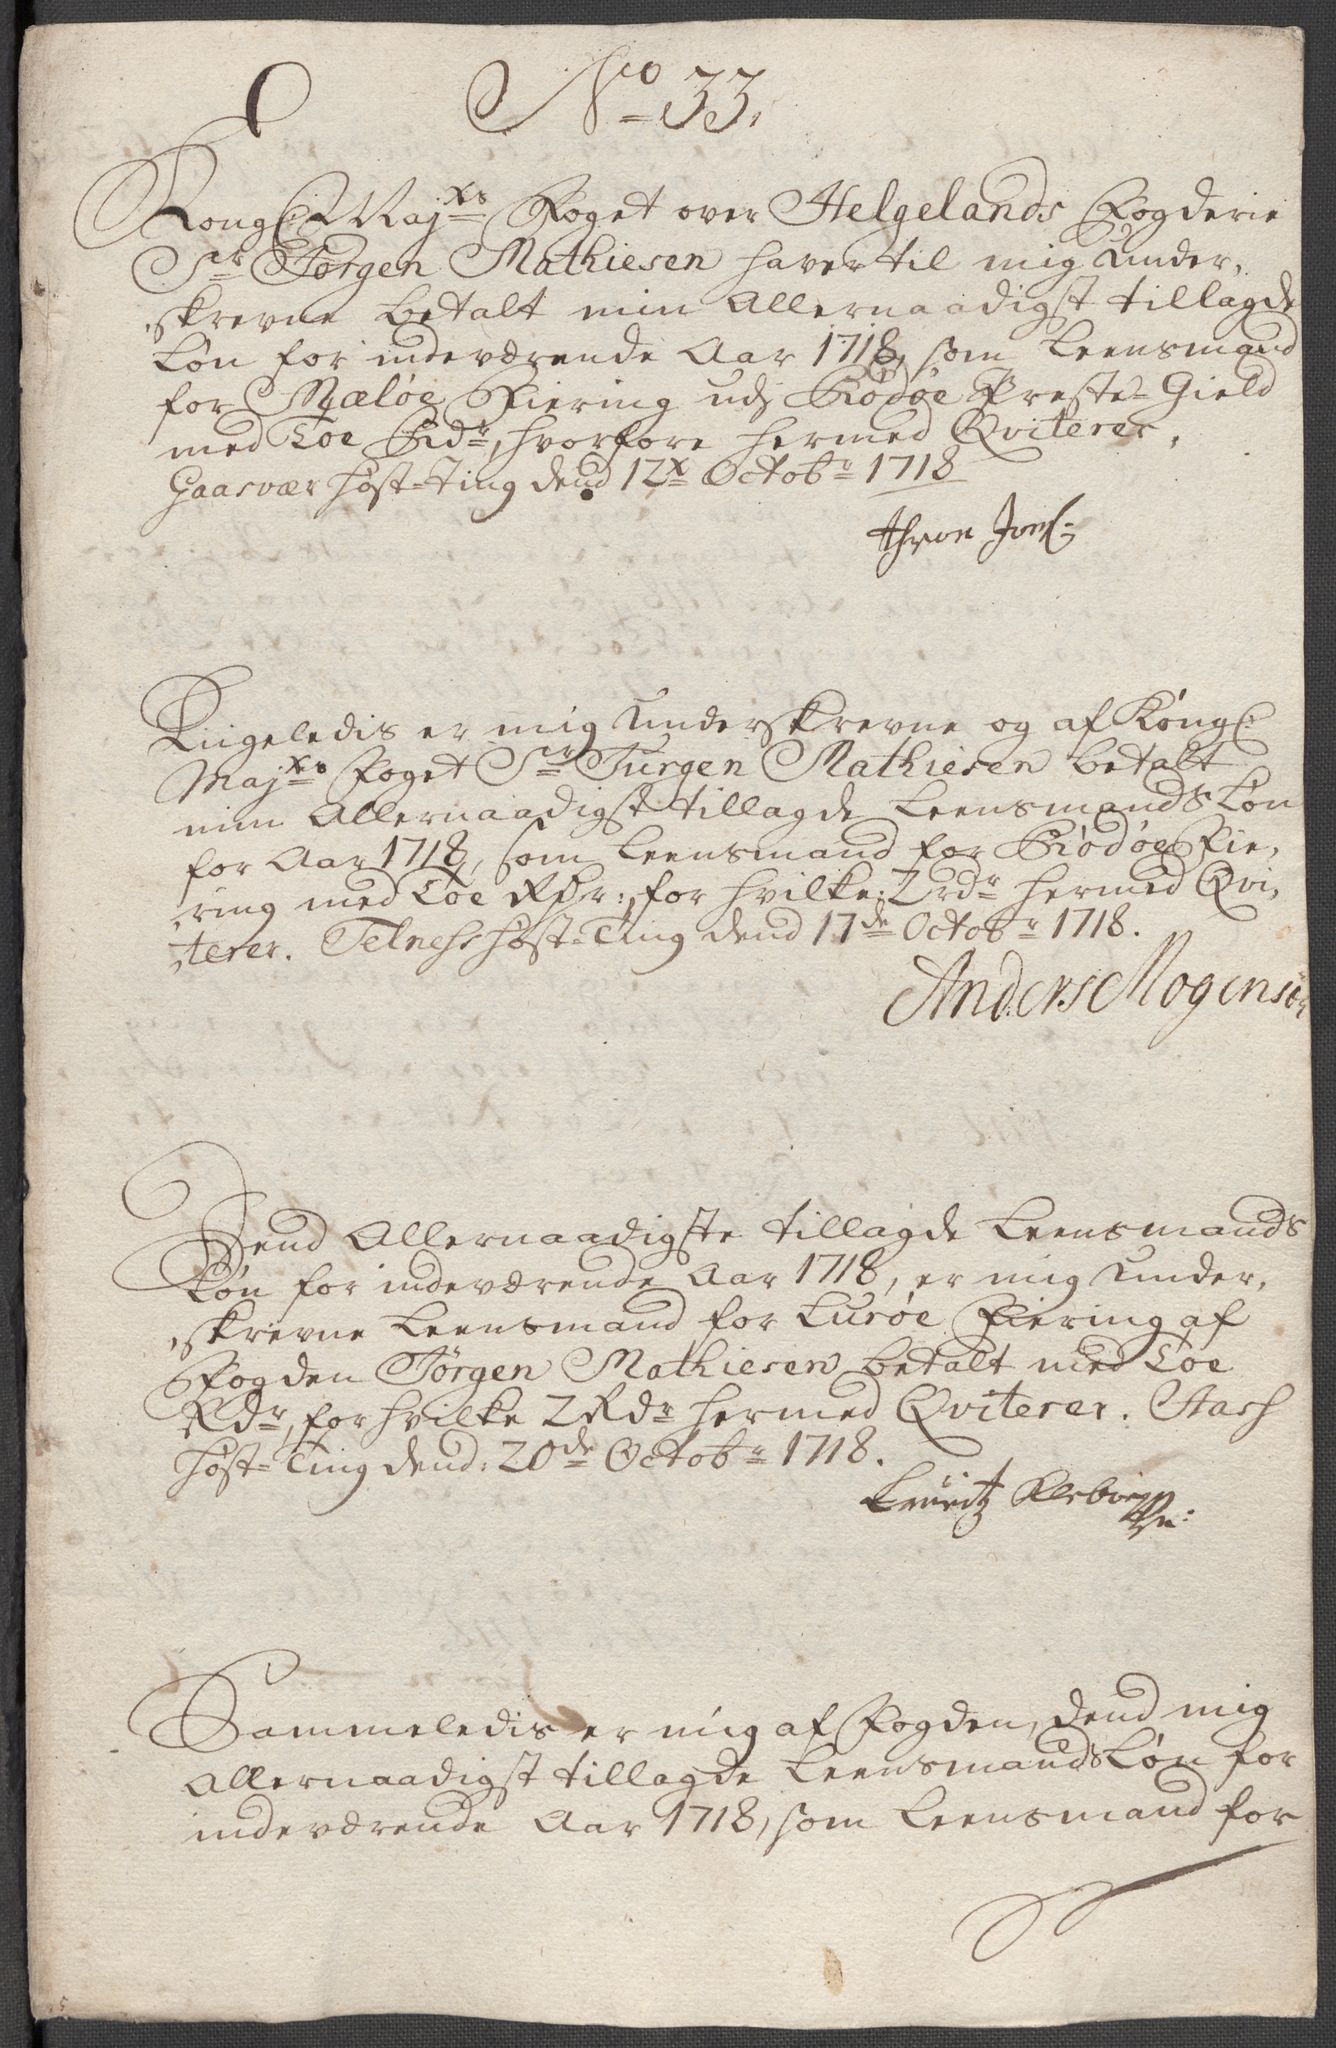 No 33.
Kongl. Mayts Foget over Helgelands Fogderie
Sr Jørgen Mathiesen haver til mig Under-
skrevne betalt min Allernaadigst tillagde
Løn for indeværende Aar 1718, som Leensmand
for Mæløe Fiering udj Rødøe Preste-Gield
med Toe Rdr, hvorfore hermed Qviterer,
Gaasvær Høst-Ting dend 12te Octobr 1718
thron Jons:
Ligeledis er mig Underskrevne og af Kongl:
Mayts Foget Sr Jürgen Mathiesen betalt
min Allernaadigst tillagde Leensmands Løn
for Aar 1718, som Leensmand for Rødøe Fie-
ring med Toe Rdr:, for hvilke 2 rdr hermed Qvi-
terer. Selness Høst-Ting dend 17de Octobr 1718.
Anders Mogensen
Dend Allernaadigste tillagde Leensmands
Løn for indeværende Aar 1718, er mig Under-
skrevne Leensmand for Lurøe Fiering af
Fogden Jørgen Mathiesen betalt med Toe
Rdr, for hvilke 2 Rdr hermed Qviterer. Aass
Høst-Ting dend: 20de Octobr 1718.
Lauritz
Sammeledis er mig af Fogden, dend mig
Allernaadigst tillagde Leensmands Løn for
indeværende Aar 1718, som Leensmand for